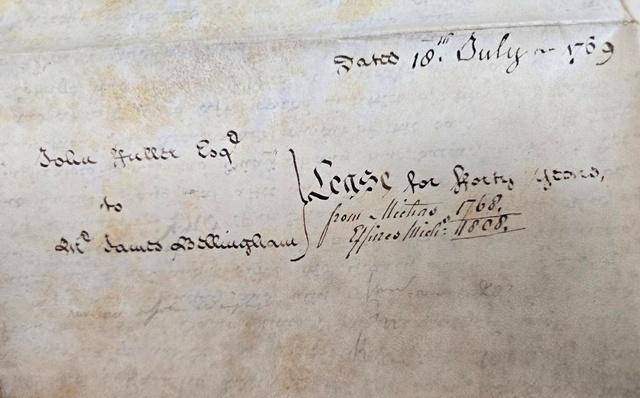 Dated 18th July 1769
John Fuller Esqr
to
Mr James Bellingham
Lease for fforty Years,
from Michas 1768.
Expires Michs 1808.